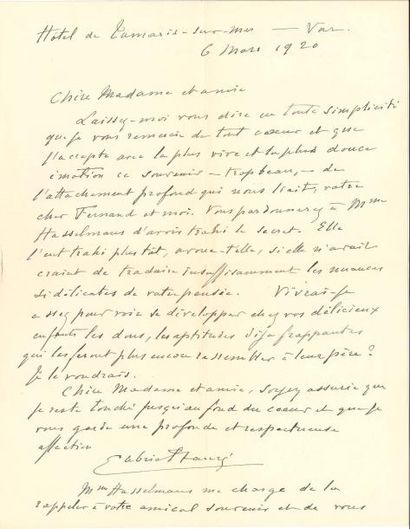 Hotel de Tamaris-sur-mer — Var.
6 Mars 1920
Chère Madame et amie
Laissez-moi vous dire en toute simplicité
que je vous remercie de tout coeur et que
j'accepte avec la plus vive et la plus douce
émotion ce souvenir — trop beau, — de
l'attachement profond qui nous liait, votre
cher Fernand et moi. Vous pardonnerez à Mme
Hasselmans d'avoir trahi le secret. Elle
l'eut trahi plus tôt, avoue-telle, si elle n'avait
craint de traduire insuffisamment les nuances
si délicates de votre pensée. Vivrai-je
assez pour voir se développer chez vos délicieux
enfants les dons, les aptitudes déja frappantes
qui les feront plus encore ressembler à leur père?
Je le voudrais.
Chère Madame et amie, soyez assurée que
je reste touché jusqu'au fond du coeur et que je
vous garde une profonde et respectueuse
affection
Gabriel Fauré
Mme Hasselmans me charge de la
rappeler à votre amical souvenir et de vous